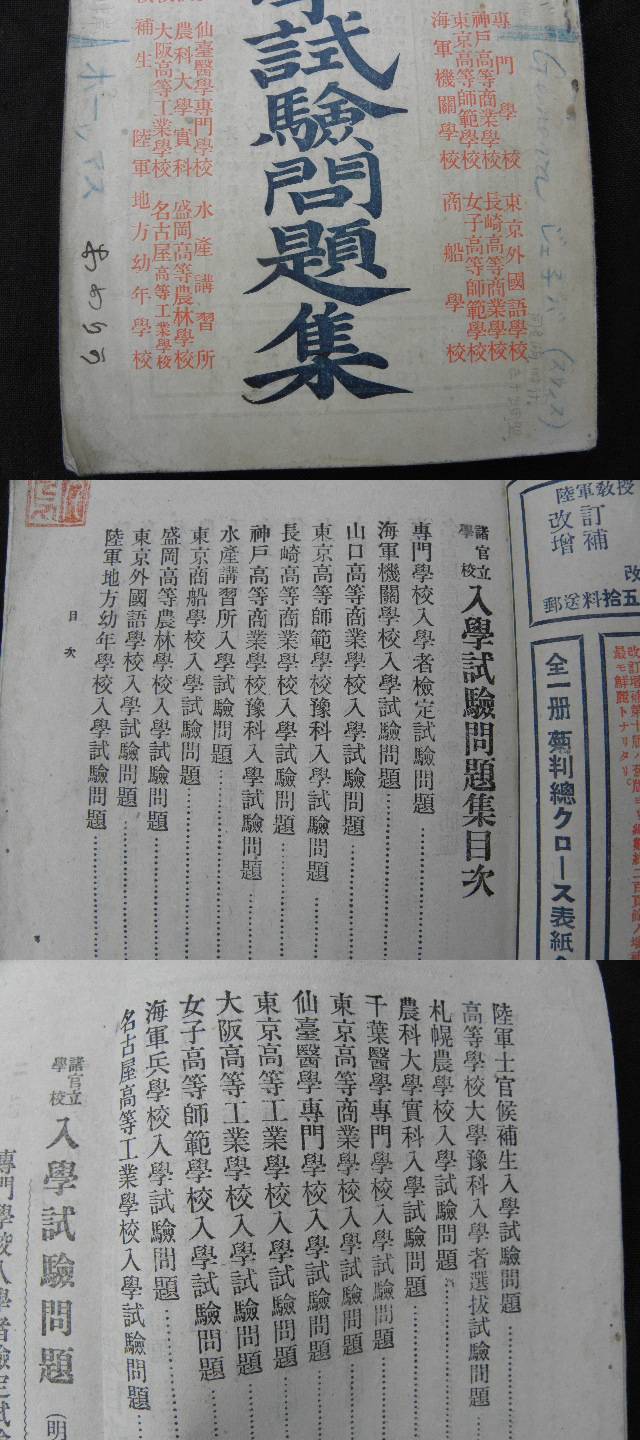 專門學校
神戸高等商業學校
東京高等師範學校
海軍機關學校
東京外國語學校
長崎高等商業學校
女子高等師範學校
商船學校
試驗問題集
仙臺醫學專門學校
農科大學實科
大阪高等工業學校
補生 陸軍地方幼年學校
水産講習所
盛岡高等農林學校
名古屋高等工業學校
ホーマス
陸軍教授
改訂
增補
郵送料拾五
全一册 菊判總クロース表紙
諸官立
學校
入學試驗問題集目次
專門學校入學者檢定試驗問題
海軍機關學校入學試驗問題
山口高等商業學校入學試驗問題
東京高等師範學校豫科入學試驗問題
長崎高等商業學校入學試驗問題
神戸高等商業學校豫科入學試驗問題
水產講習所入學試驗問題
東京商船學校入學試驗問題
盛岡高等農林學校入學試驗問題
東京外國語學校入學試驗問題
陸軍地方幼年學校入學試驗問題
目次
陸軍士官候補生入學試驗問題
高等學校大學豫科入學者選拔試驗問題
札幌農學校入學試驗問題
農科大學實科入學試驗問題
千葉醫學專門學校入學試驗問題
東京高等商業學校入學試驗問題
仙臺醫學專門學校入學試驗問題
東京高等工業學校入學試驗問題
大阪高等工業學校入學試驗問題
女子高等師範學校入學試驗問題
海軍兵學校入學試驗問題
名古屋高等工業學校入學試驗問題
諸官立
學校
入學試驗問題 (明
專門學校入學者檢定試驗